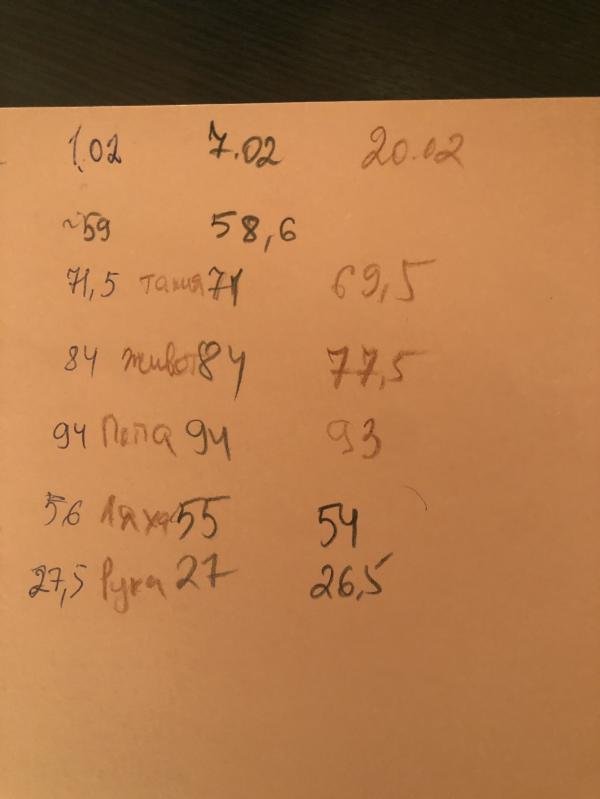 1.02 7.02 20.02
~59 58,6
71,5 талия 71 69,5
84 живот 84 77,5
94 Попа 94 93
56 Ляха 55 54
27,5 Рука 27 26,5